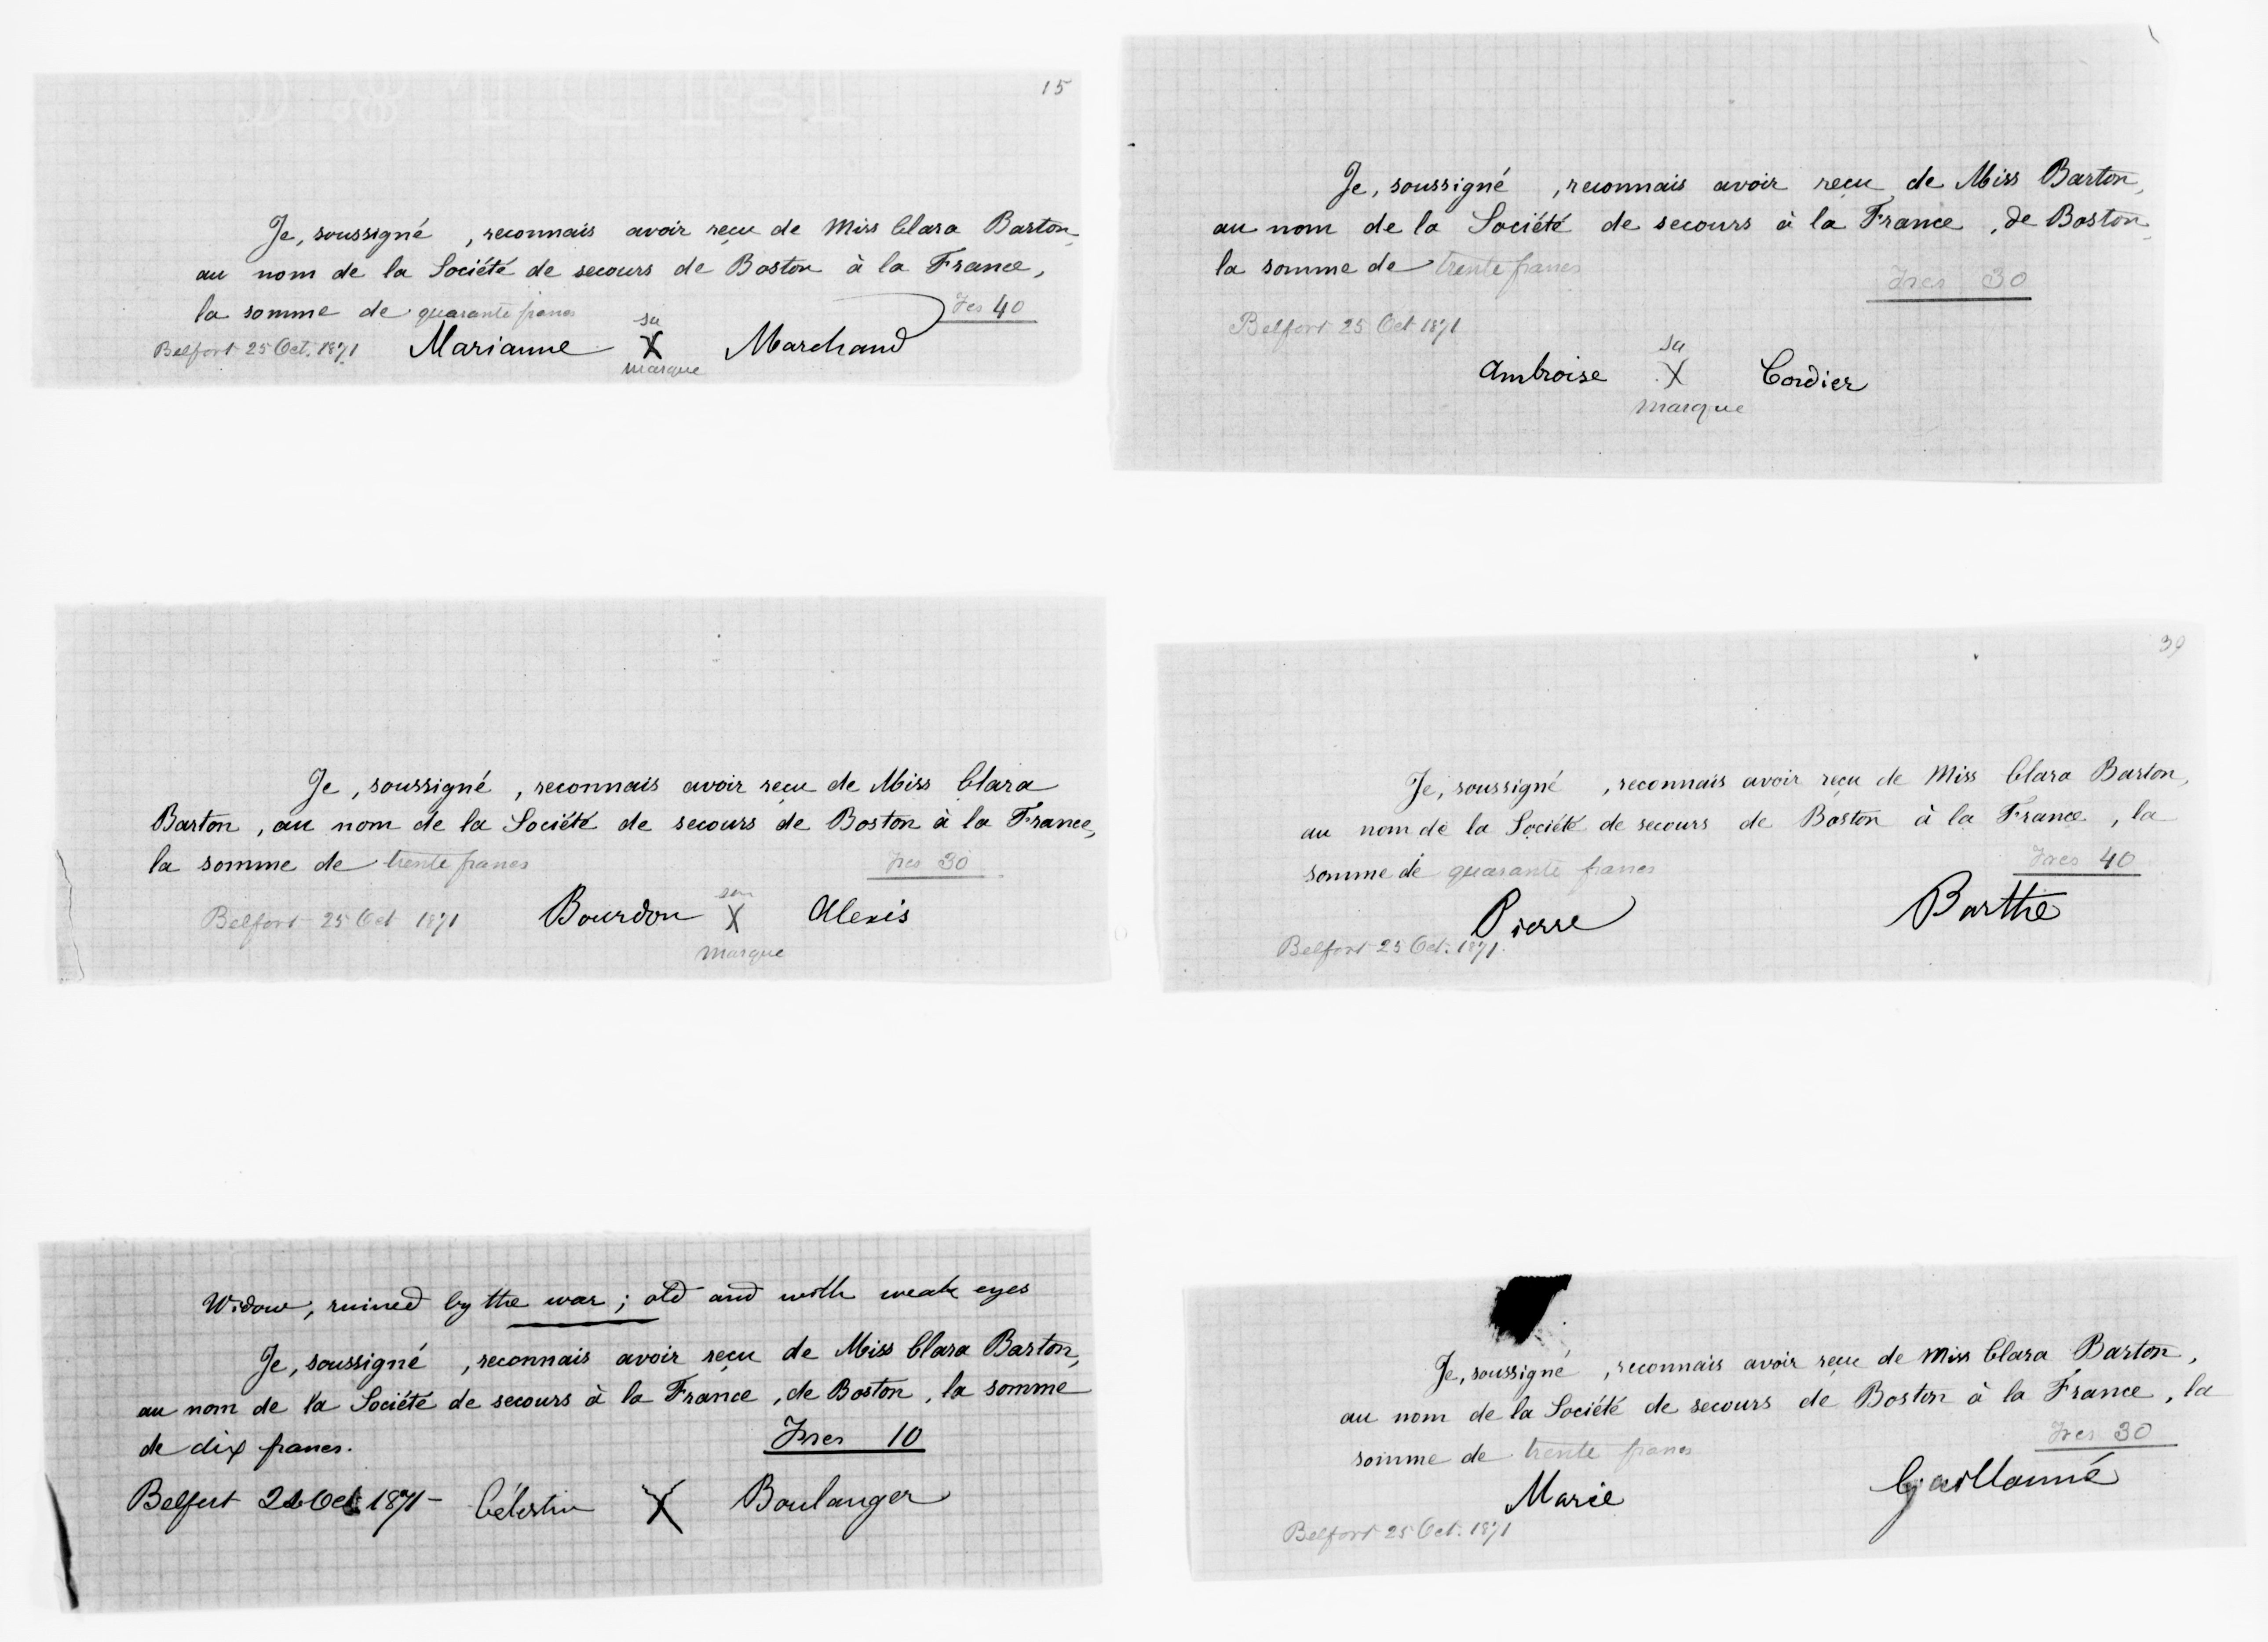 15
Je, soussigné , reconnais avoir reçu de Miss Clara Barton,
au nom de la Société de secours de Boston à la France,
la somme de quarante francs
Fcs 40
Belfort 25 Oct. 1871 Marianne sa X marque Marchand
Je, soussigné , reconnais avoir reçu de Miss Barton,
au nom de la Société de secours à la France, de Boston,
la somme de trente francs
Frcs 30
Belfort 25 Oct 1871
Ambroise sa X marque Cordier
Je, soussigné , reconnais avoir reçu de Miss Clara
Barton, au nom de la Société de secours de Boston à la France,
la somme de trente francs
Frcs 30
Belfort 25 Oct 1871 Bourdon son X marque Alexis
39
Je, soussigné , reconnais avoir reçu de Miss Clara Barton,
au nom de la Société de secours de Boston à la France, la
somme de quarante francs
Frcs 40
Pierre Barthe
Belfort 25 Oct. 1871.
Widow, ruined by the war; old and with weak eyes
Je, soussigné , reconnais avoir reçu de Miss Clara Barton,
au nom de la Société de secours à la France, de Boston, la somme
de dix francs.
Frcs 10
Belfort Oct 1871 - Célestin X Boulanger
Je, soussigné , reconnais avoir reçu de Miss Clara Barton,
au nom de la Société de secours de Boston à la France, la
somme de trente francs
Frcs 30
Marie
Belfort 25 Oct. 1871